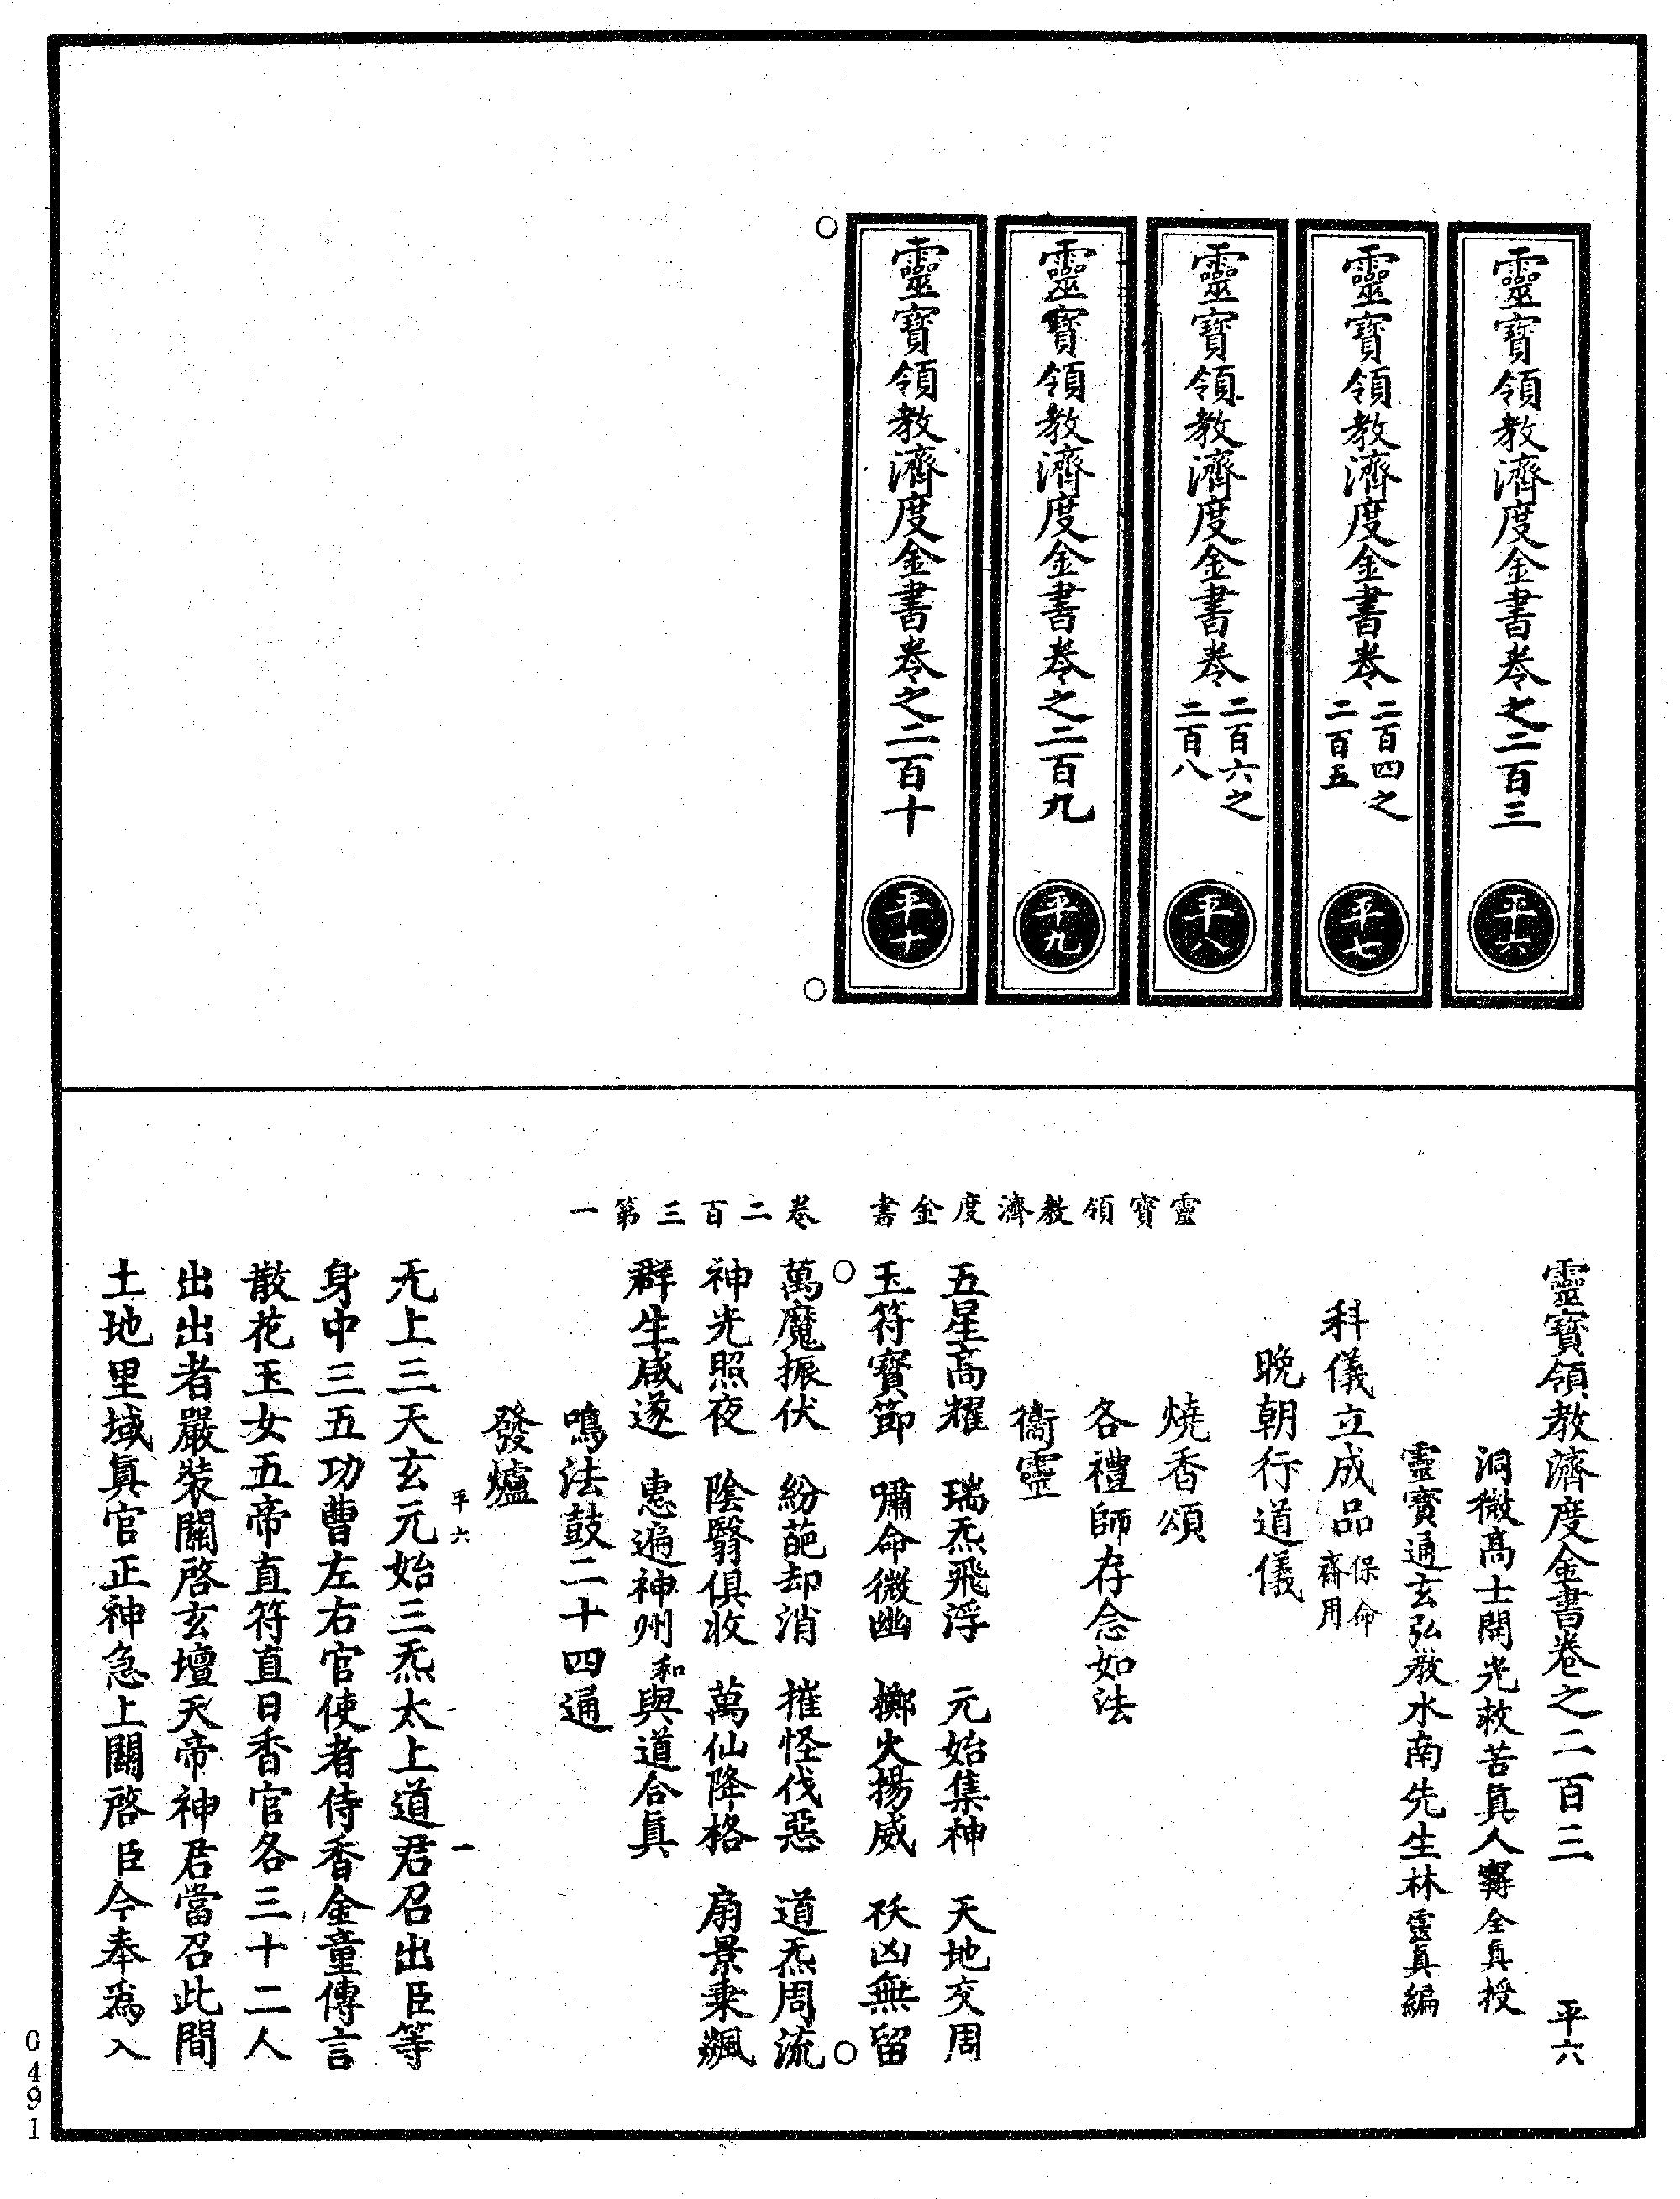 靈寶領教濟度金書卷之二百三
平六
靈寶領教濟度金書卷二百四之二百五
平七
靈寶領教濟度金書卷二百六之二百八
平八
靈寶領教濟度金書卷之二百九
平九
靈寶領教濟度金書卷之二百十
平十
靈寶領教濟度金書 卷二百三第一
靈寶領教濟度金書卷之二百三 平六
洞微高士開光救苦眞人寗全眞授
靈寶通玄弘敎水南先生林靈眞編
科儀立成品保命齋用
晚朝行道儀
燒香頌
各禮師存念如法
衞靈
五星高耀 瑞炁飛浮 元始集神 天地交周
玉符寶節 嘯命微幽 擲火揚威 祅凶無留
萬魔振伏 紛葩却消 摧怪伐惡 道炁周流
神光照夜 陰翳俱收 萬仙降格 扇景乘飆
群生咸遂 惠遍神州和與道合眞
鳴法鼓二十四通
發爐
平六 一
无上三天玄元始三炁太上道君召出臣等
身中三五功曹左右官使者侍香金童傳言
散花玉女五帝直符直日香官各三十二人
出出者嚴裝關啓玄壇天帝神君當召此間
土地里域眞官正神急上關啓臣今奉爲入
0491